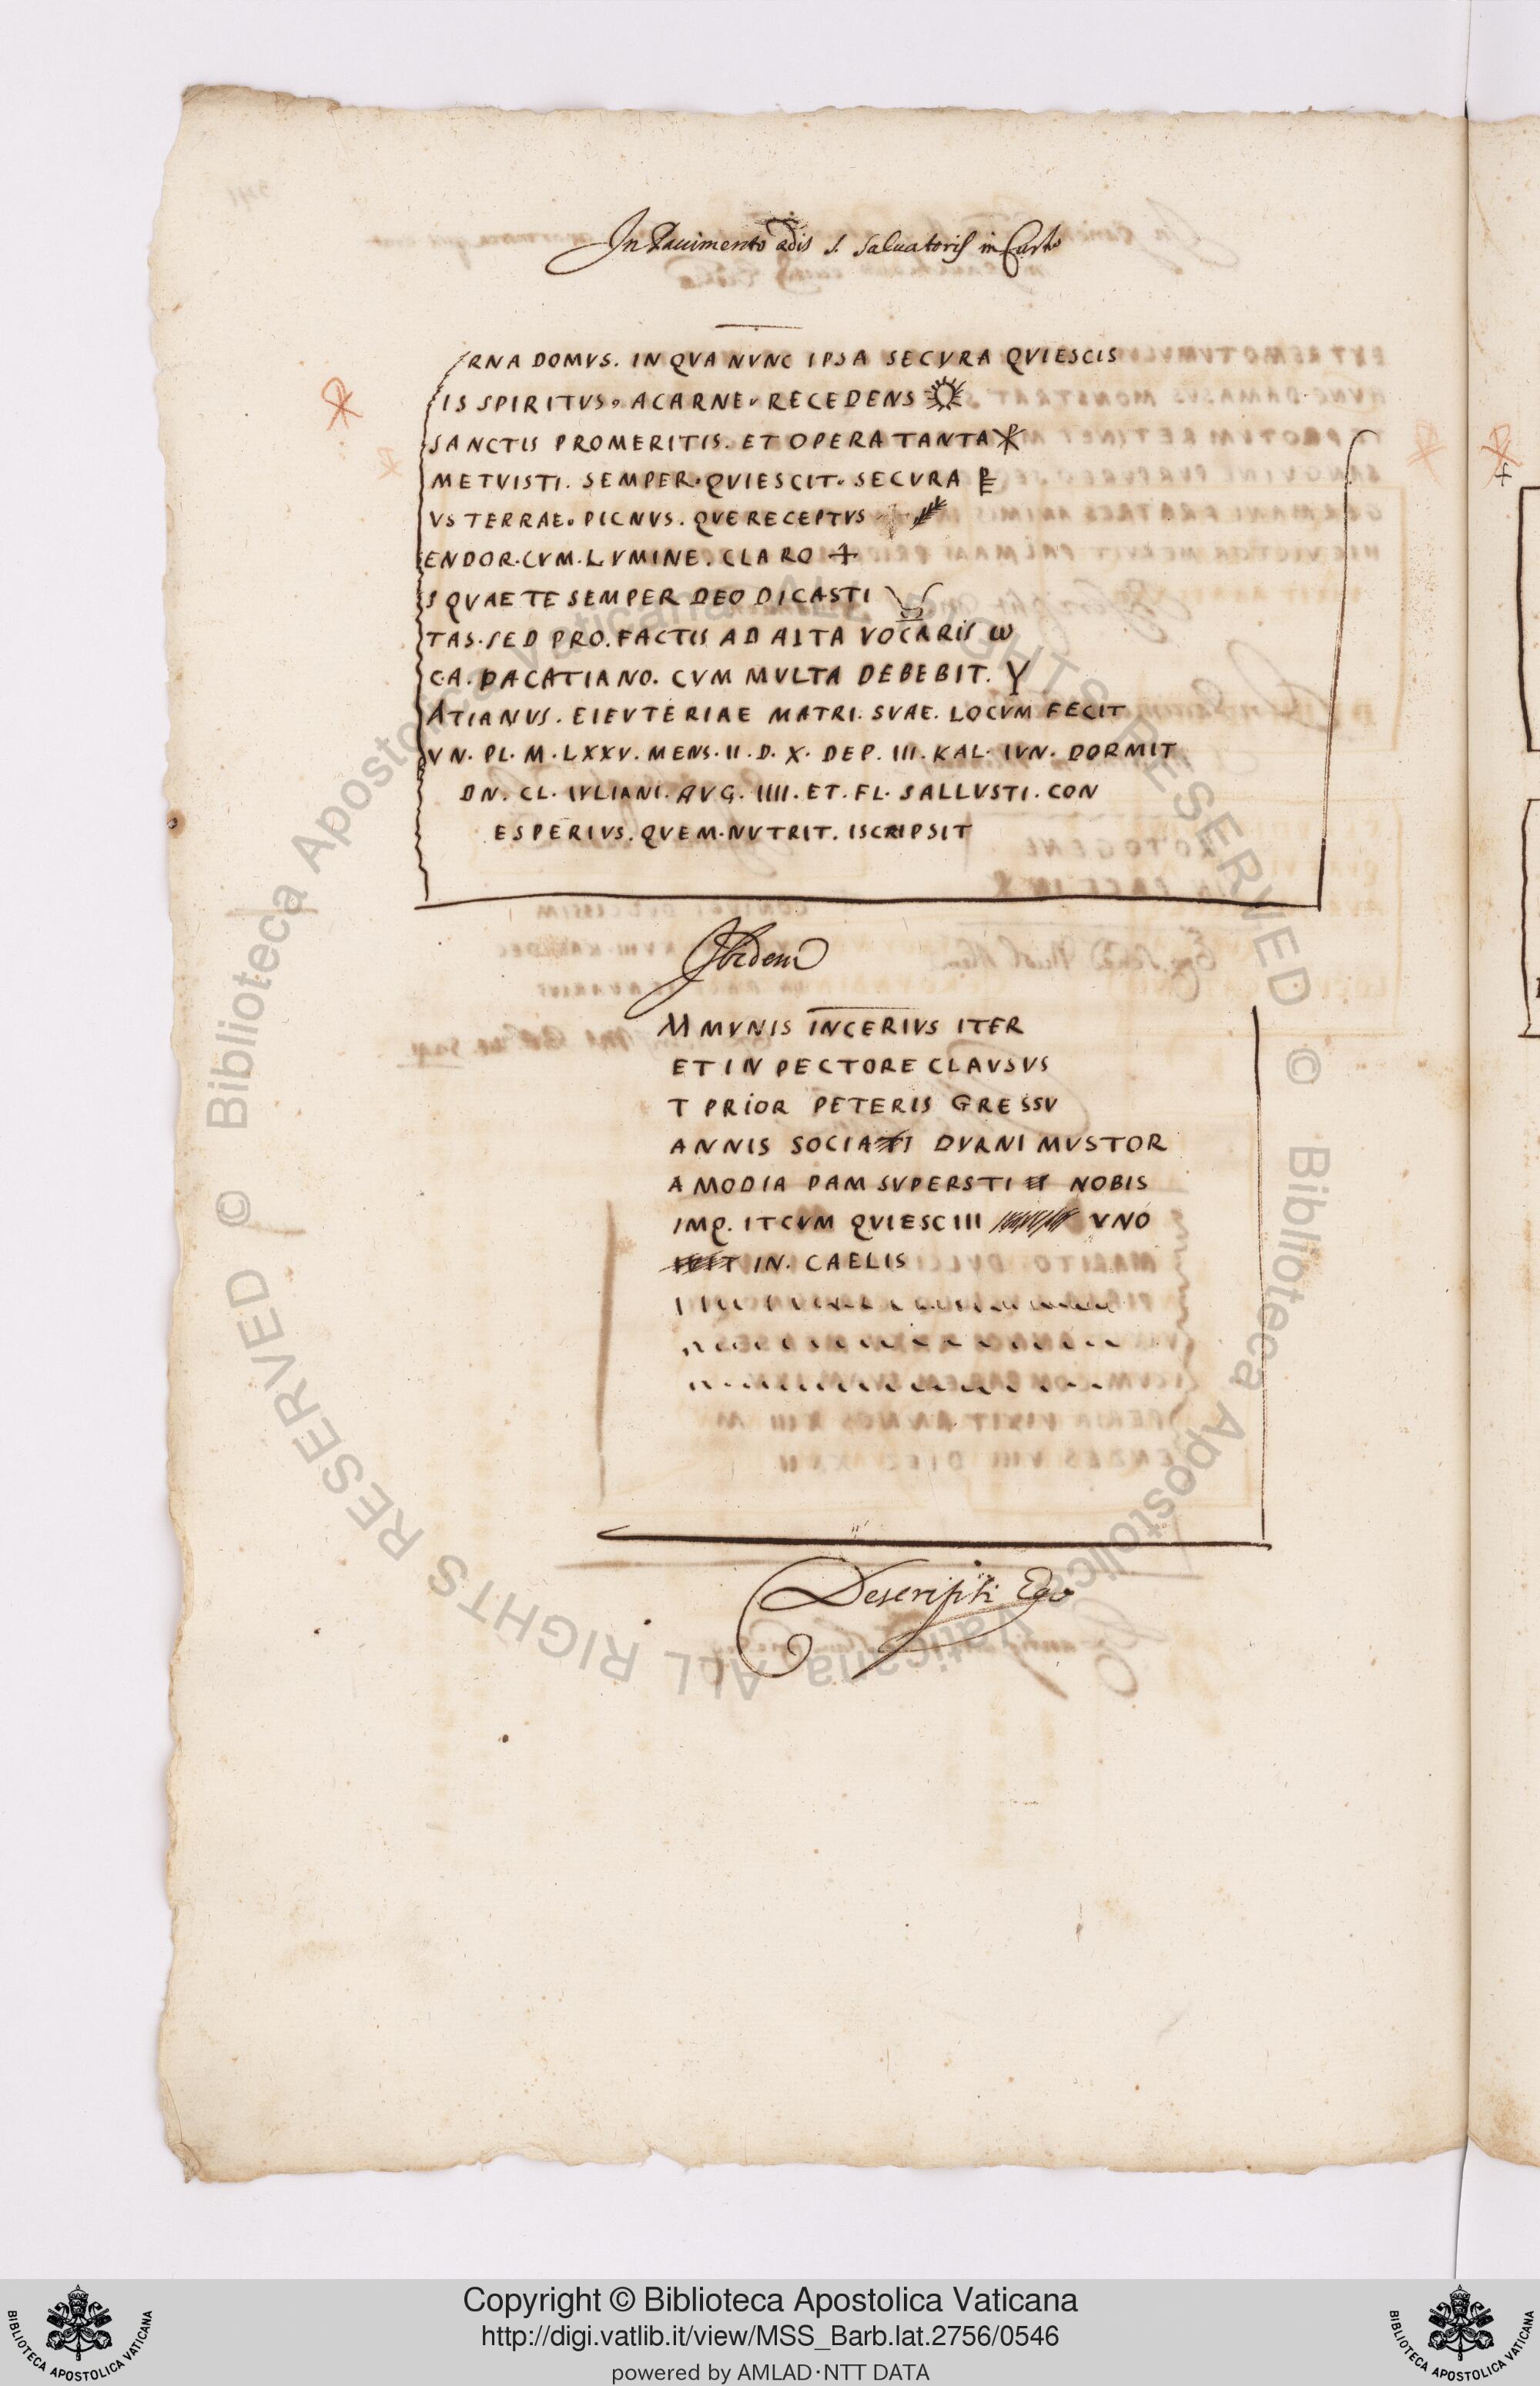 In Pauimento ædis S. Saluatoris in Curte
RNA DOMVS. IN QVA NVNC IPSA SECVRA QVIESCIS
IS SPIRITVS. A CARNE. RECEDENS
SANCTIS PROMERITIS. ET OPERA TANTA
METVISTI. SEMPER. QVIESCIT. SECVRA
VS TERRAE. PICNVS. QVE RECEPTVS
ENDOR. CVM. LVMINE. CLARO +
S QVAE TE SEMPER DEO DICASTI
TAS. SED PRO. FACTIS AD AITA VOCARIS ω
CA. PACATIANO. CVM MVLTA DEBEBIT. Y
ATIANVS. EIEVTERIAE MATRI. SVAE. LOCVM FECIT
VN. PL. M. LXXV. MENS. II. D. X. DEP. III. KAL. IVN. DORMIT
DN. CL. IVLIANI. AVG. IIII. ET. FL. SALLVSTI. CON
ESPERIVS. QVEM. NVTRIT. ISCRIPSIT
Ibidem
MMVNIS INCERIVS ITER
ET IN PECTORE CLAVSVS
T PRIOR PETERIS GRESSV
ANNIS DVRNI MVSTOR
A MODIA PAM SVPERSTI NOBIS
IMQ. ITCVM QVIESCIII VNO
IN. CAELIS
Descripsi Ego
Copyright © Biblioteca Apostolica Vaticana
http://digi.vatlib.it/view/MSS_Barb.lat.2756/0546
powered by AMLAD·NTT DATA
© Biblioteca Apostolica Vaticana ALL RIGHTS RESERVED
© Biblioteca Apostolica Vaticana ALL RIGHTS RESERVED
BIBLIOTECA APOSTOLICA VATICANA
BIBLIOTECA APOSTOLICA VATICANA